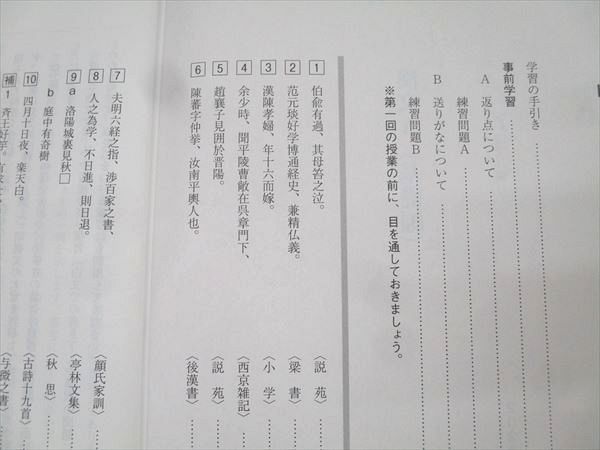 学習の手引き
事前学習
A 返り点について
練習問題A
B 送りがなについて
練習問題B
※第一回の授業の前に、目を通しておきましょう。
1 伯兪有過、其母笞之泣。 〈説苑〉
2 范元琰好学博通経史、兼精仏義。 〈梁書〉
3 漢陳孝婦、年十六而嫁。 〈小学〉
4 余少時、聞平陵曹敞在呉章門下、 〈西京雑記〉
5 趙襄子見囲於晋陽。 〈説苑〉
6 陳蕃字仲挙、汝南平輿人也。 〈後漢書〉
7 夫明六経之指、渉百家之書、 〈顔氏家訓〉
8 人之為学、不日進、則日退。 〈亭林文集〉
9 a 洛陽城裏見秋□ 〈秋思〉
b 庭中有奇樹 〈古詩十九首〉
10 四月十日夜、楽天白。 〈与微之書〉
補1 斉王好竽。